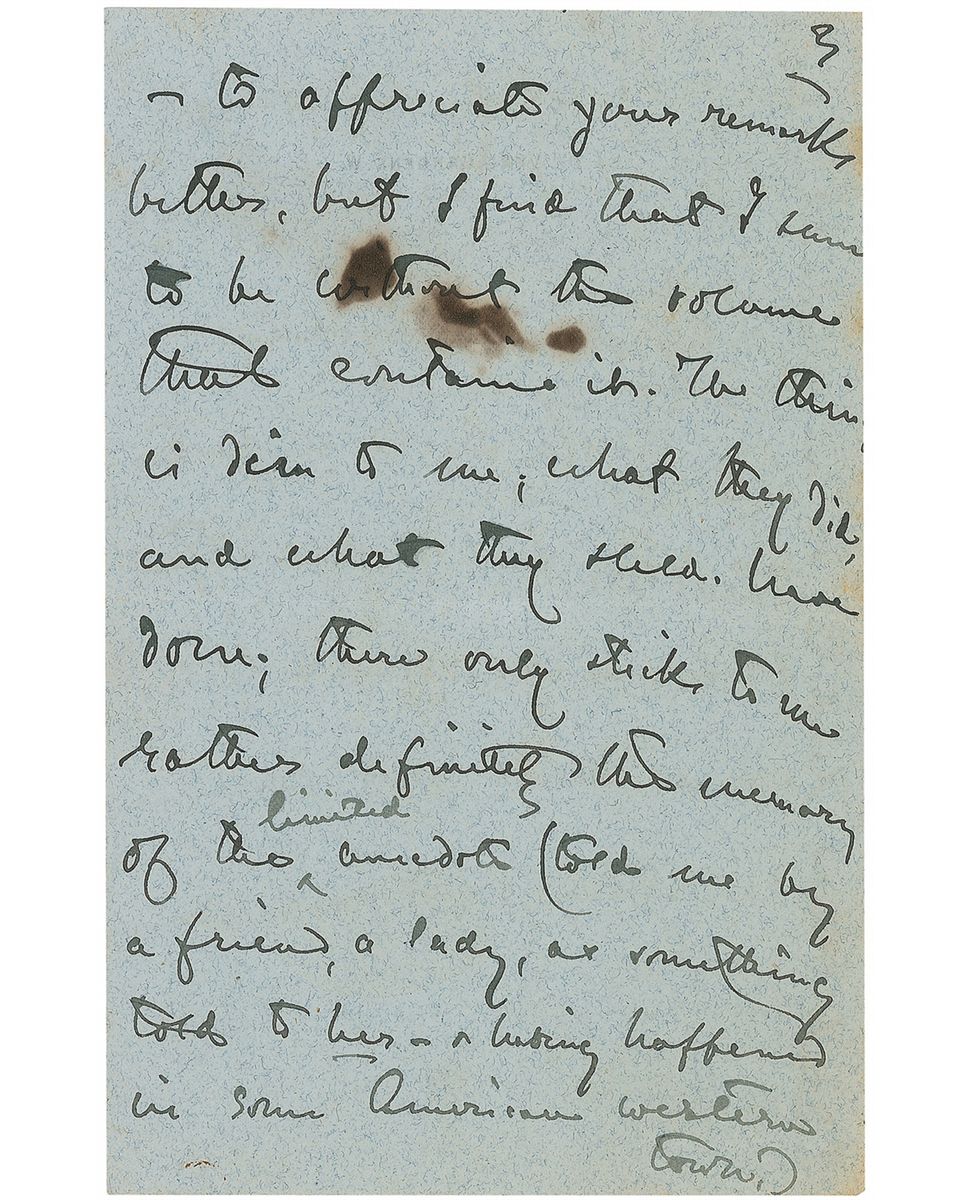 3
– to appreciate your remarks
better, but I find that I seem
to be without the volume
that contains it. The thing
is dim to me; what they did,
and what they shld. have
done; there only sticks to me
rather definitely the memory
limited
of the anecdote (told me by
a friend, a lady, as something
told to her – & having happened
in some American western
town.)